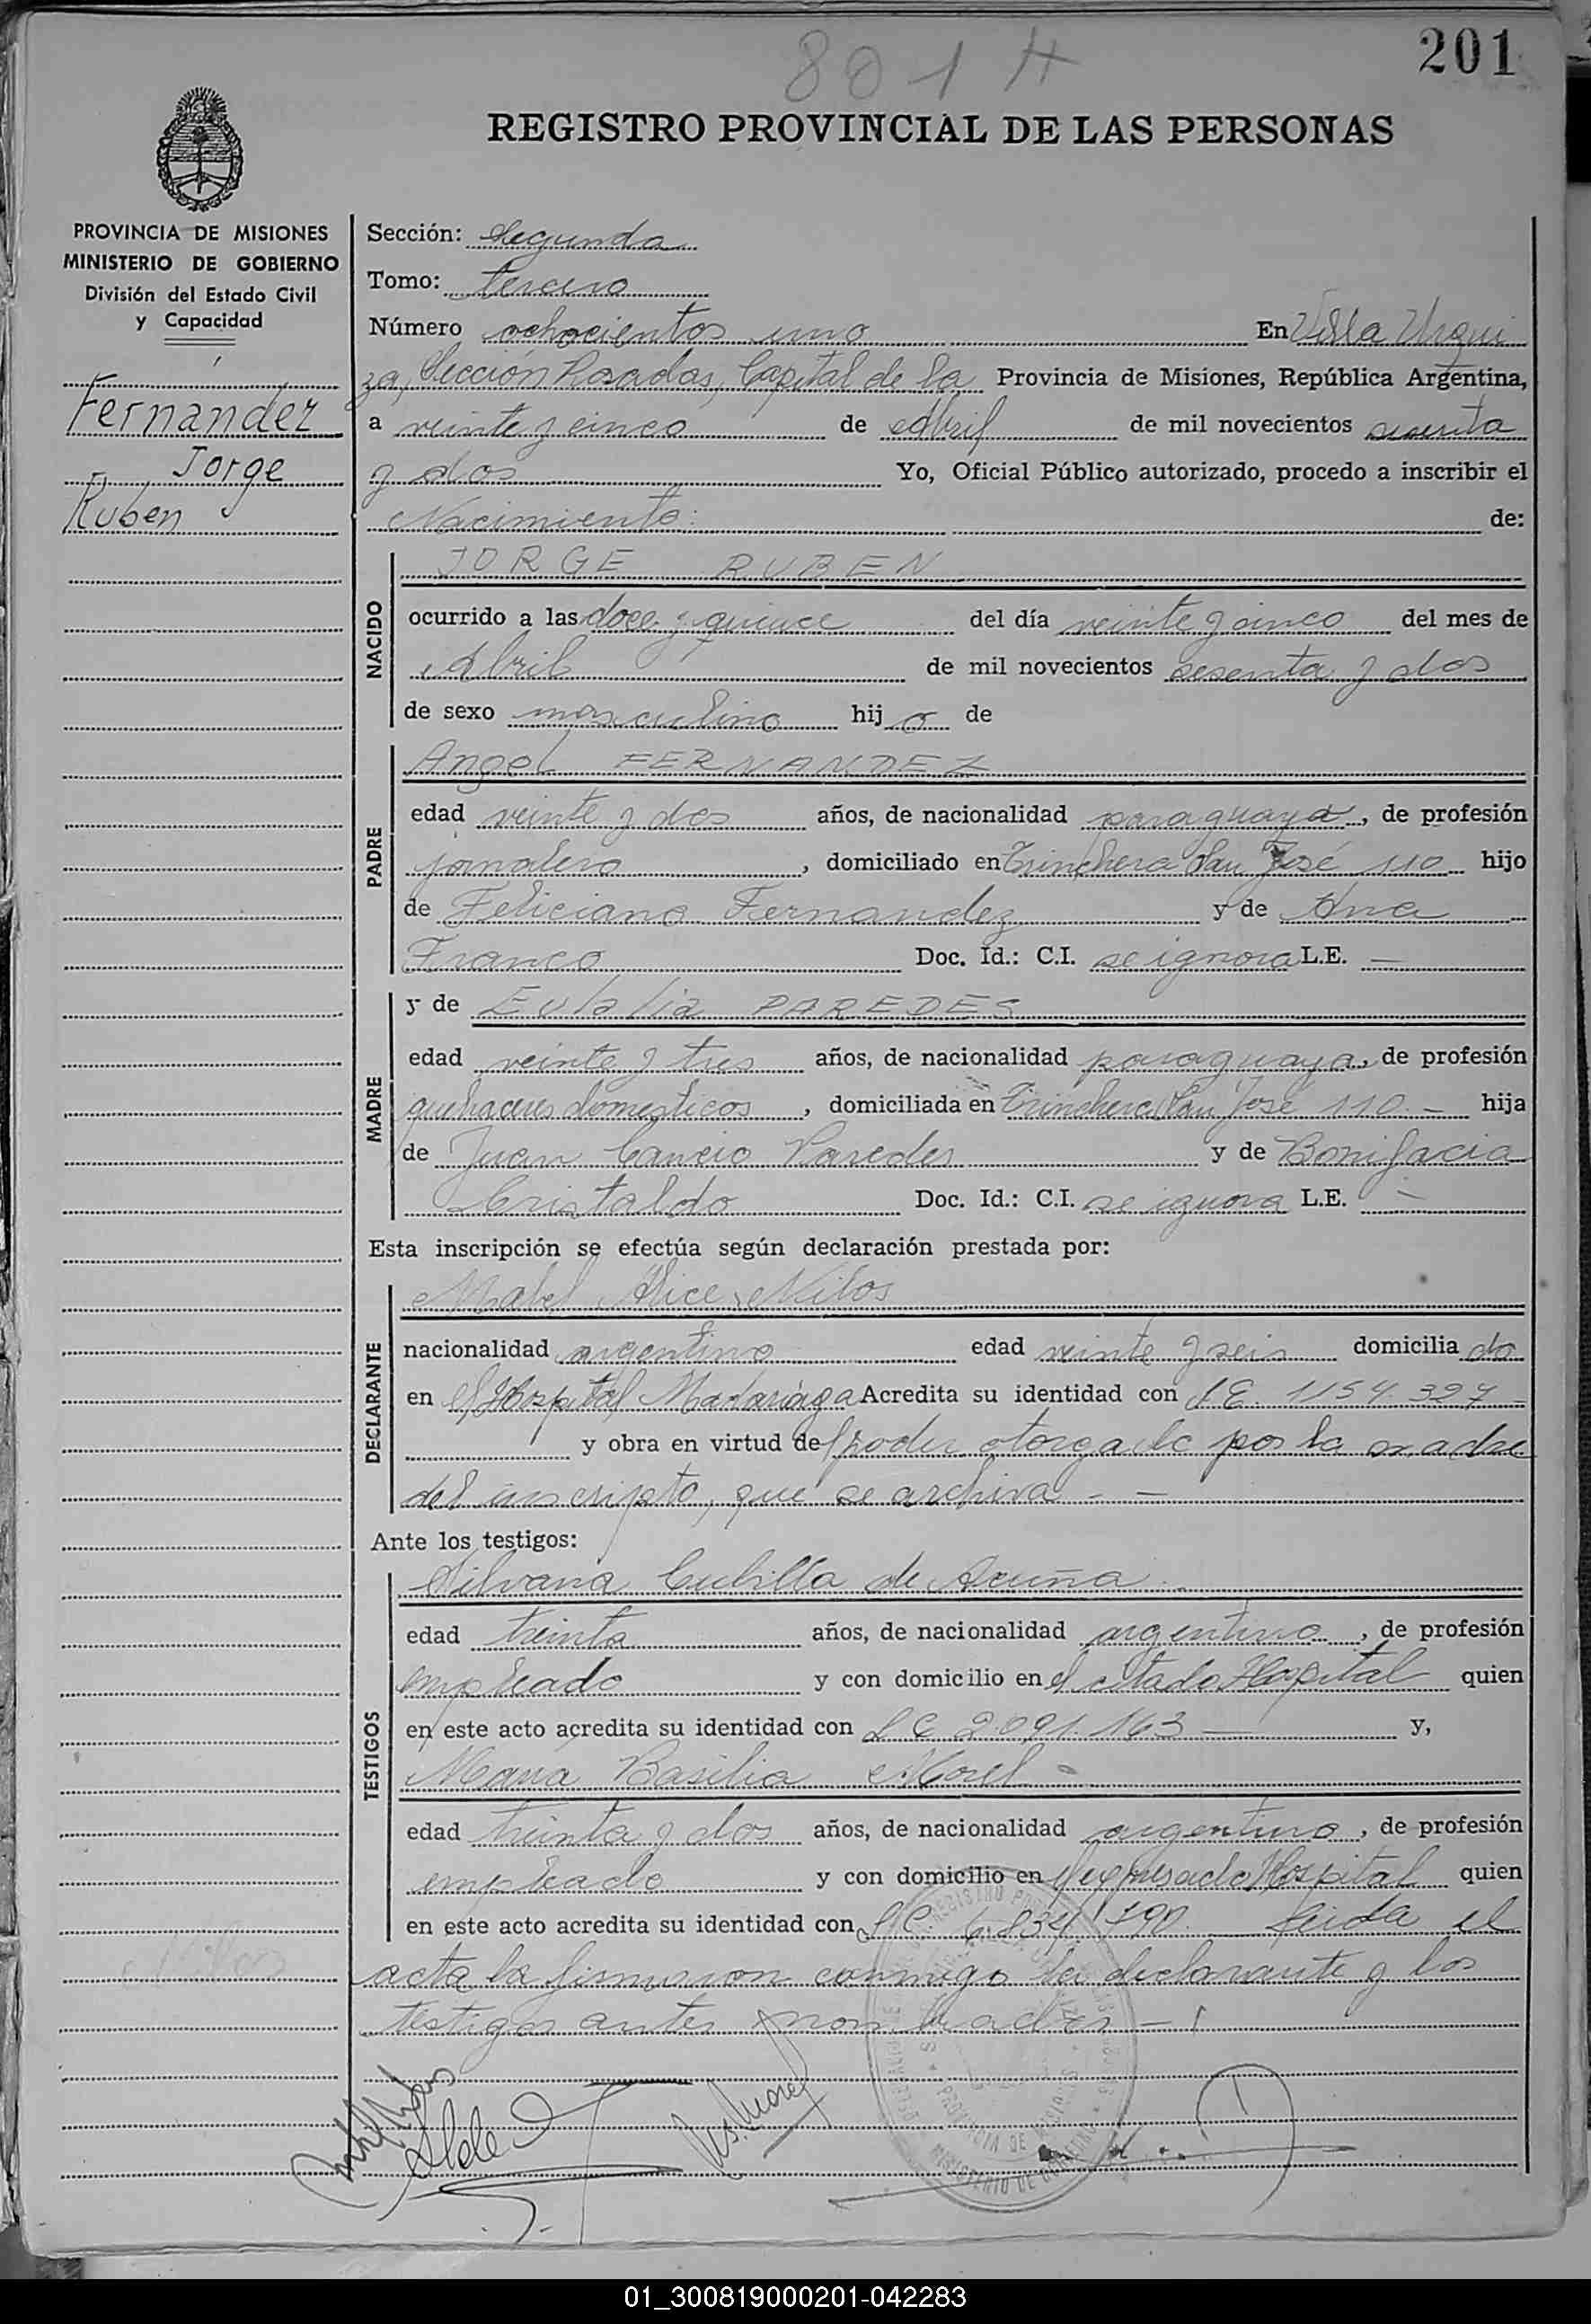 801 H
201
REGISTRO PROVINCIAL DE LAS PERSONAS
PROVINCIA DE MISIONES
MINISTERIO DE GOBIERNO
División del Estado Civil
y Capacidad
Fernández
Jorge
Ruben
Sección: Segunda
Tomo: tercero
Número ochocientos uno En Villa Urqui
za, Sección Posadas, Capital de la Provincia de Misiones, República Argentina,
a veinte y cinco de Abril de mil novecientos sesenta
y dos Yo, Oficial Público autorizado, procedo a inscribir el
Nacimiento: de:
NACIDO
JORGE RUBEN
ocurrido a las doce y quince del día veinte y cinco del mes de
Abril de mil novecientos sesenta y dos
de sexo masculino hijo de
PADRE
Angel FERNANDEZ
edad veinte y dos años, de nacionalidad paraguaya, de profesión
jornalero, domiciliado en Trinchera San José 110 hijo
de Feliciano Fernandez y de Ana
Franco Doc. Id.: C.I. se ignora L.E. —
MADRE
y de Eulalia PAREDES
edad veinte y tres años, de nacionalidad paraguaya, de profesión
quehaceres domesticos, domiciliada en Trinchera San José 110 - hija
de Juan Cancio Paredes y de Bonifacia
Cristaldo Doc. Id.: C.I. se ignora L.E. -
Esta inscripción se efectúa según declaración prestada por:
DECLARANTE
Mabel Alice
nacionalidad argentina edad veinte y seis domicilia da
en el Hospital Madariaga Acredita su identidad con 1154.327
y obra en virtud del poder otorgado por la madre
del inscripto, que se archiva - -
Ante los testigos:
TESTIGOS
Silvana Cubilla de Acuña
edad treinta años, de nacionalidad argentina, de profesión
empleado y con domicilio en el citado Hospital quien
en este acto acredita su identidad con L C 2.091.163 — y,
María Basilia Morel -
edad treinta y dos años, de nacionalidad argentino, de profesión
empleado y con domicilio en el expresado Hospital quien
en este acto acredita su identidad con L.C. Leida el
acta la firmaron conmigo la declarante y los
testigos antes nombrados -
PROVINCIA DE MISIONES
MINISTERIO DE GOBIERNO
01_300819000201-042283